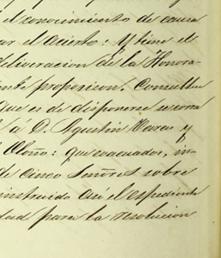 el conocimiento de causa
el acierto: Y tiene el
deliveracion de la Honora
proposicion. Consulten
que es de disponerse
á D. Agustin Navas y
que evacuados, in
de Cinco Señores sobre
instruido así el espediente
para la resolucion